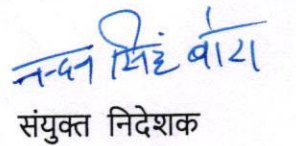 नन्दन सिंह बोरा
संयुक्त निदेशक